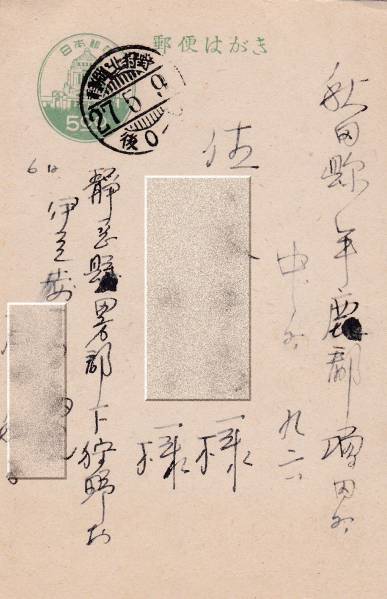 郵便はがき
日本郵便
静岡・北狩野
27.5.9
後0-
秋田縣平鹿郡増田町
中町 九二
佐
様
様
静岡縣田方郡下狩野村
6日
伊豆